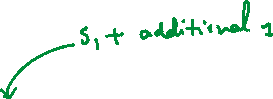 S₁ + additional 1